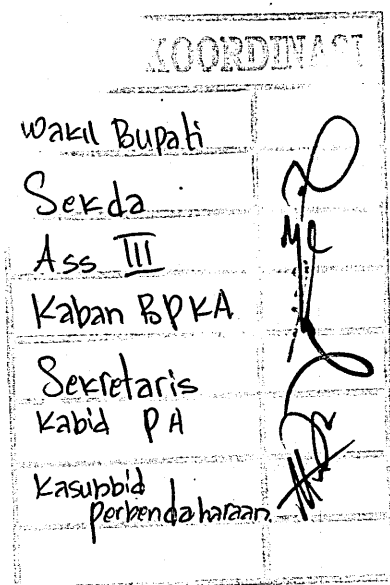 KOORDINASI
Wakil Bupati
Sekda
Ass III
Kaban BPKA
Sekretaris
Kabid PA
Kasubbid
perbendaharaan.